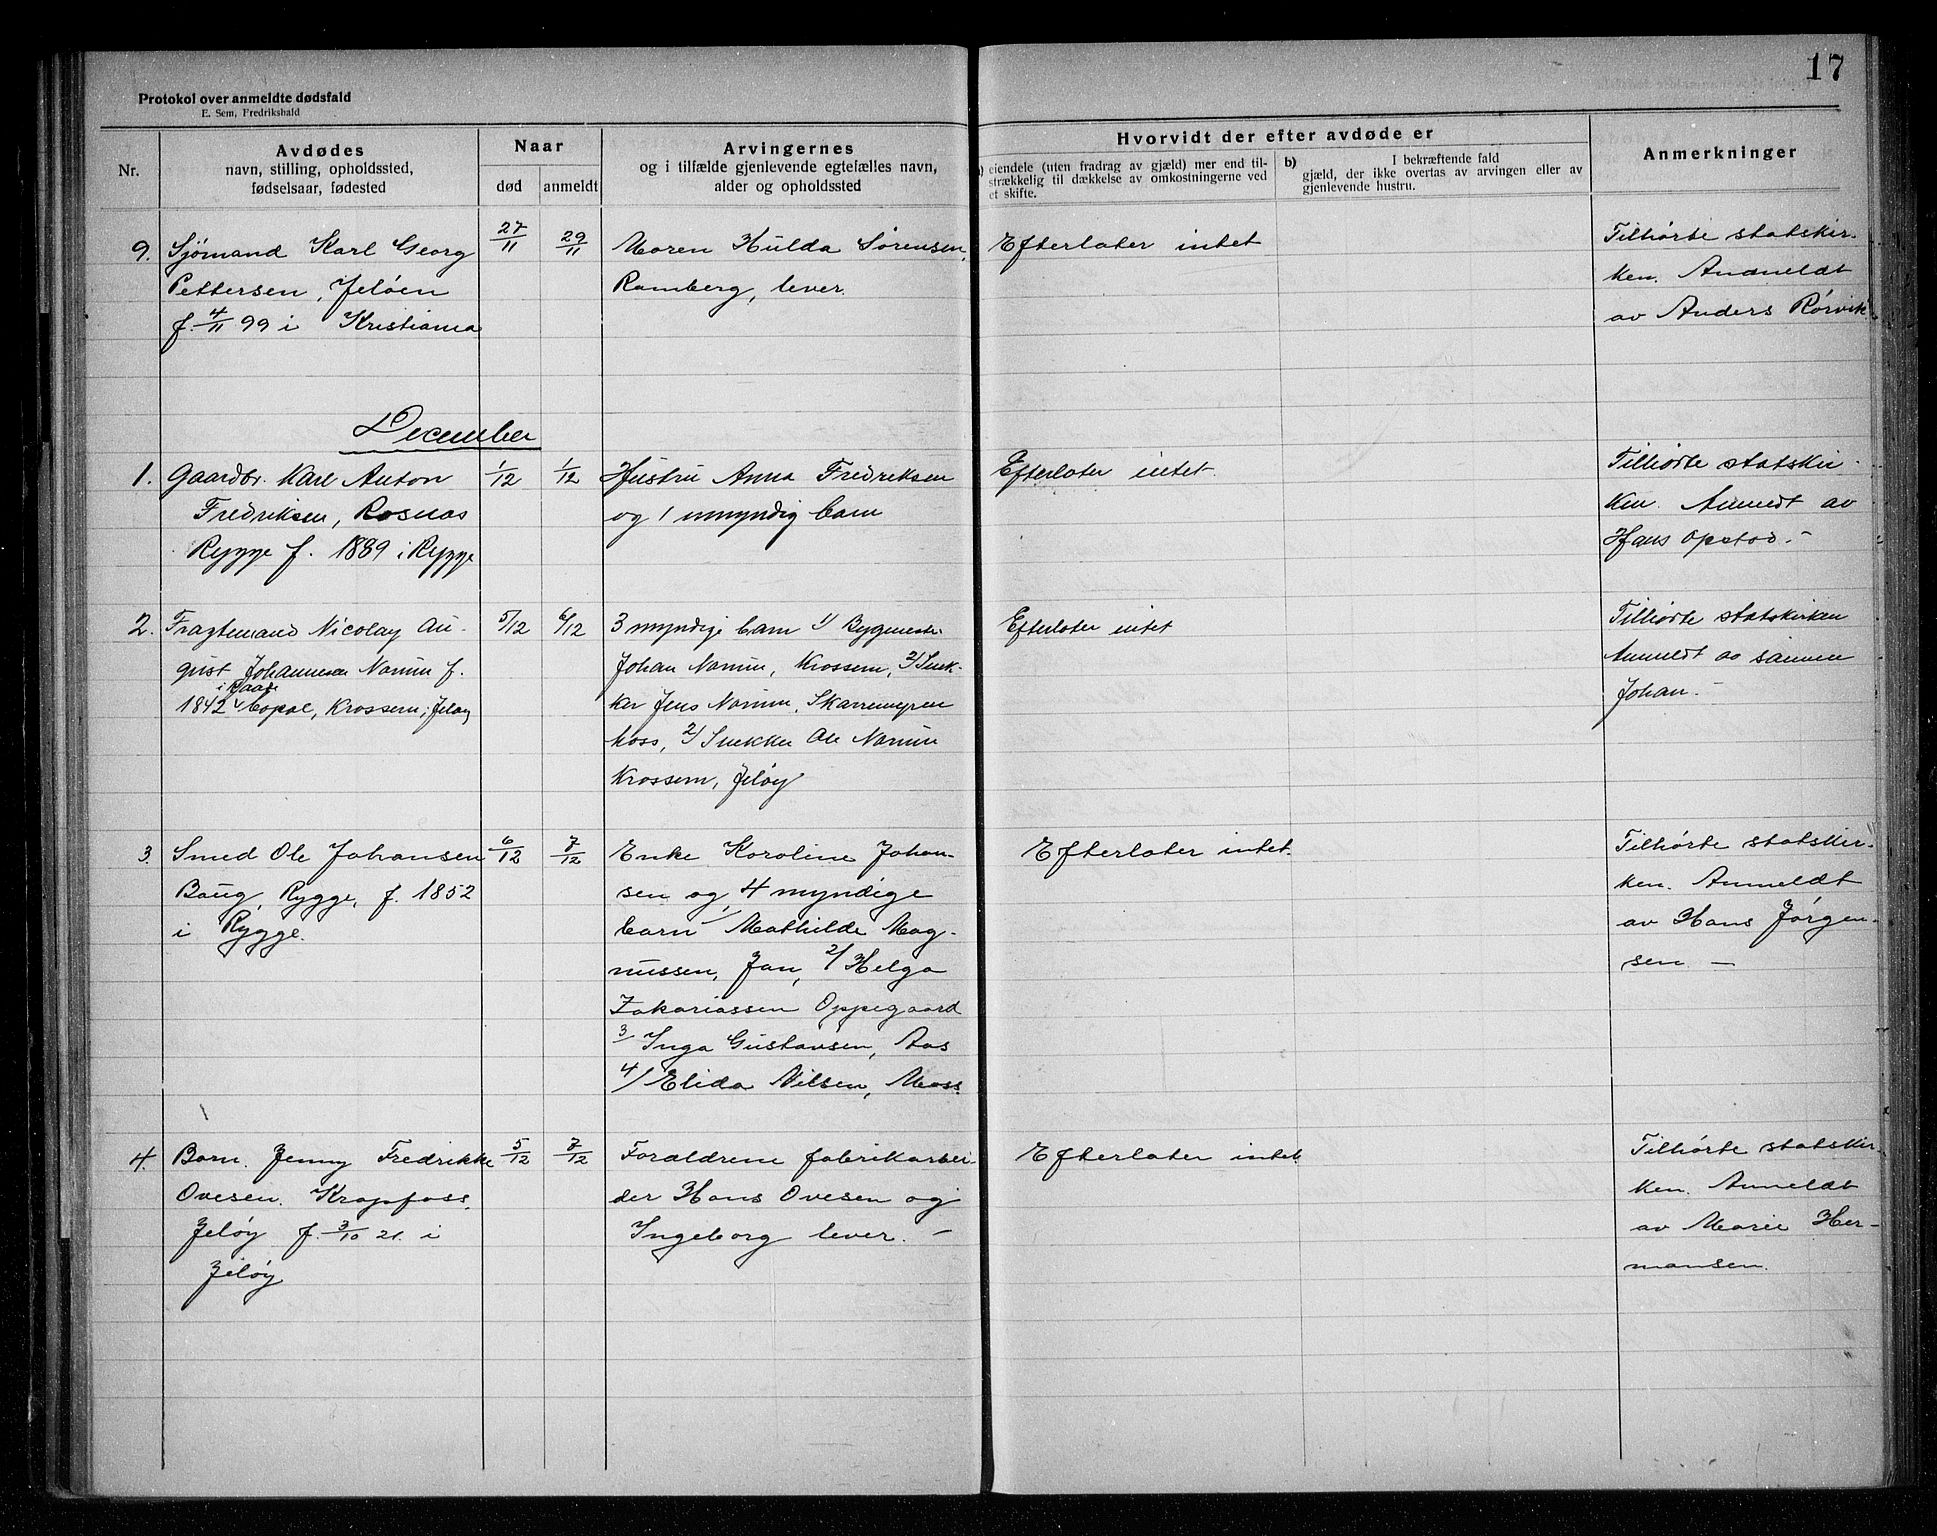 17
Protokol over anmeldte dødsfald
E. Sem, Fredrikshald
Nr.
Avdødes
navn, stilling, opholdssted,
fødselsaar, fødested
Naar
død
anmeldt
Arvingernes
og i tilfælde gjenlevende egtefælles navn,
alder og opholdssted
Hvorvidt der efter avdøde er
eiendele (uten fradrag av gjæld) mer end til-
strækkelig til dækkelse av omkostningerne ved
et skifte.
b)
I bekræftende fald
gjæld, der ikke overtas av arvingen eller av
gjenlevende hustru.
Anmerkninger
9.
Sjømand Karl Georg
Pettersen, Jeløen
f. 4/11 99 i Kristiania
27/11
29/11
Maren Hulda Sørensen,
Ramberg, lever.
Efterlater intet
Tilhørte statskir-
ken. Andmeldt
av Anders Rørvik.
December
1.
Gaardbr. Karl Anton
Fredriksen, Rosnas
Rygge f. 1889 i Rygge
1/12
1/12
Hustru Anna Fredriksen
og 1 umyndig barn
Efterlater intet.
Tilhørte statskir-
ken. Anmeldt av
Hans Opstad. -
2.
Fragtemand Nicolay Au-
gust Johannesen Narum f.
i Raade
1842, Copal, Krossern, Jeløy
5/12
6/12
3 myndige barn 1/ Bygmester
Johan Narum, Krossern, 2/ Snek-
ker Jens Narum, Skarremyren
Moss, 2/ Snekker Ole Narum
Krossern, Jeløy
Efterlater intet
Tilhørte statskirken
Anmeldt av sønnen
Johan. -
3.
Smed Ole Johansen
Baug, Rygge, f. 1852
i Rygge.
6/12
7/12
Enke Karoline Johan-
sen og 4 myndige
barn 1/ Mathilde Mag-
nussen, Jan, 2/ Helga
Zakariassen Oppegaard
3/ Inga Gustavsen, Aas
4/ Elida Nilsen, Moss.
Efterlater intet.
Tilhørte statskir-
ken. Anmeldt
av Hans Jørgen-
sen. -
4.
Barn. Jenny Fredrikke
Ovesen. Krapfoss,
Jeløy f. 3/10 21. i
Jeløy
5/12
7/12
Forældrene fabrikarbei-
der Hans Ovesen og
Ingeborg lever. -
Efterlater intet.
Tilhørte statskir-
ken. Anmeldt
av Marie Her-
mansen.